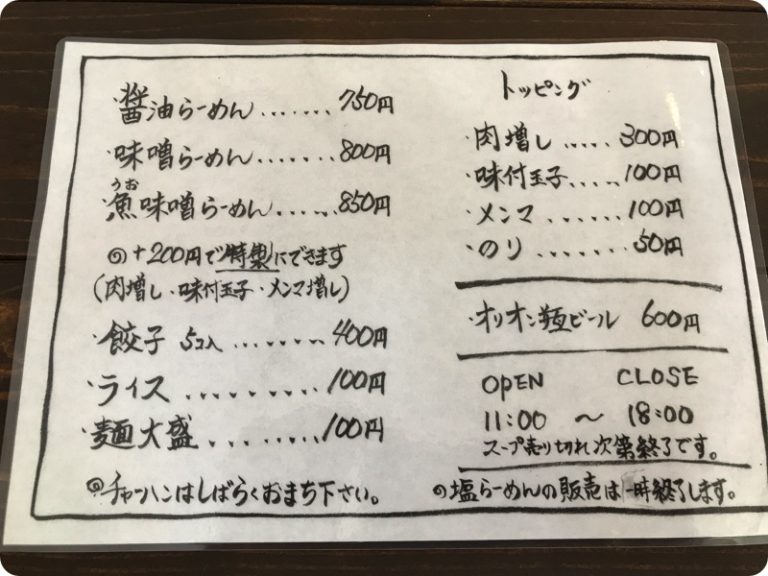 ・醤油らーめん.......750円
・味噌らーめん.......800円
うお
・魚味噌らーめん......850円
◎+200円で特製にできます
(肉増し・味付玉子・メンマ増し)
・餃子 5コ入........400円
・ライス.........100円
・麺大盛........100円
◎チャーハンはしばらくおまち下さい。
トッピング
・肉増し.....300円
・味付玉子.....100円
・メンマ......100円
・のり.......50円
・オリオン瓶ビール 600円
OPEN CLOSE
11:00 〜 18:00
スープ売り切れ次第終了です。
◎塩らーめんの販売は一時終了します。